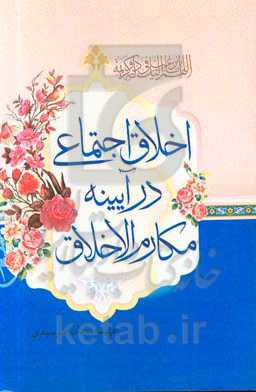 اخلاق اجتماعی
در آیینه
مکارم الاخلاق
خانه کتاب
ketab.ir